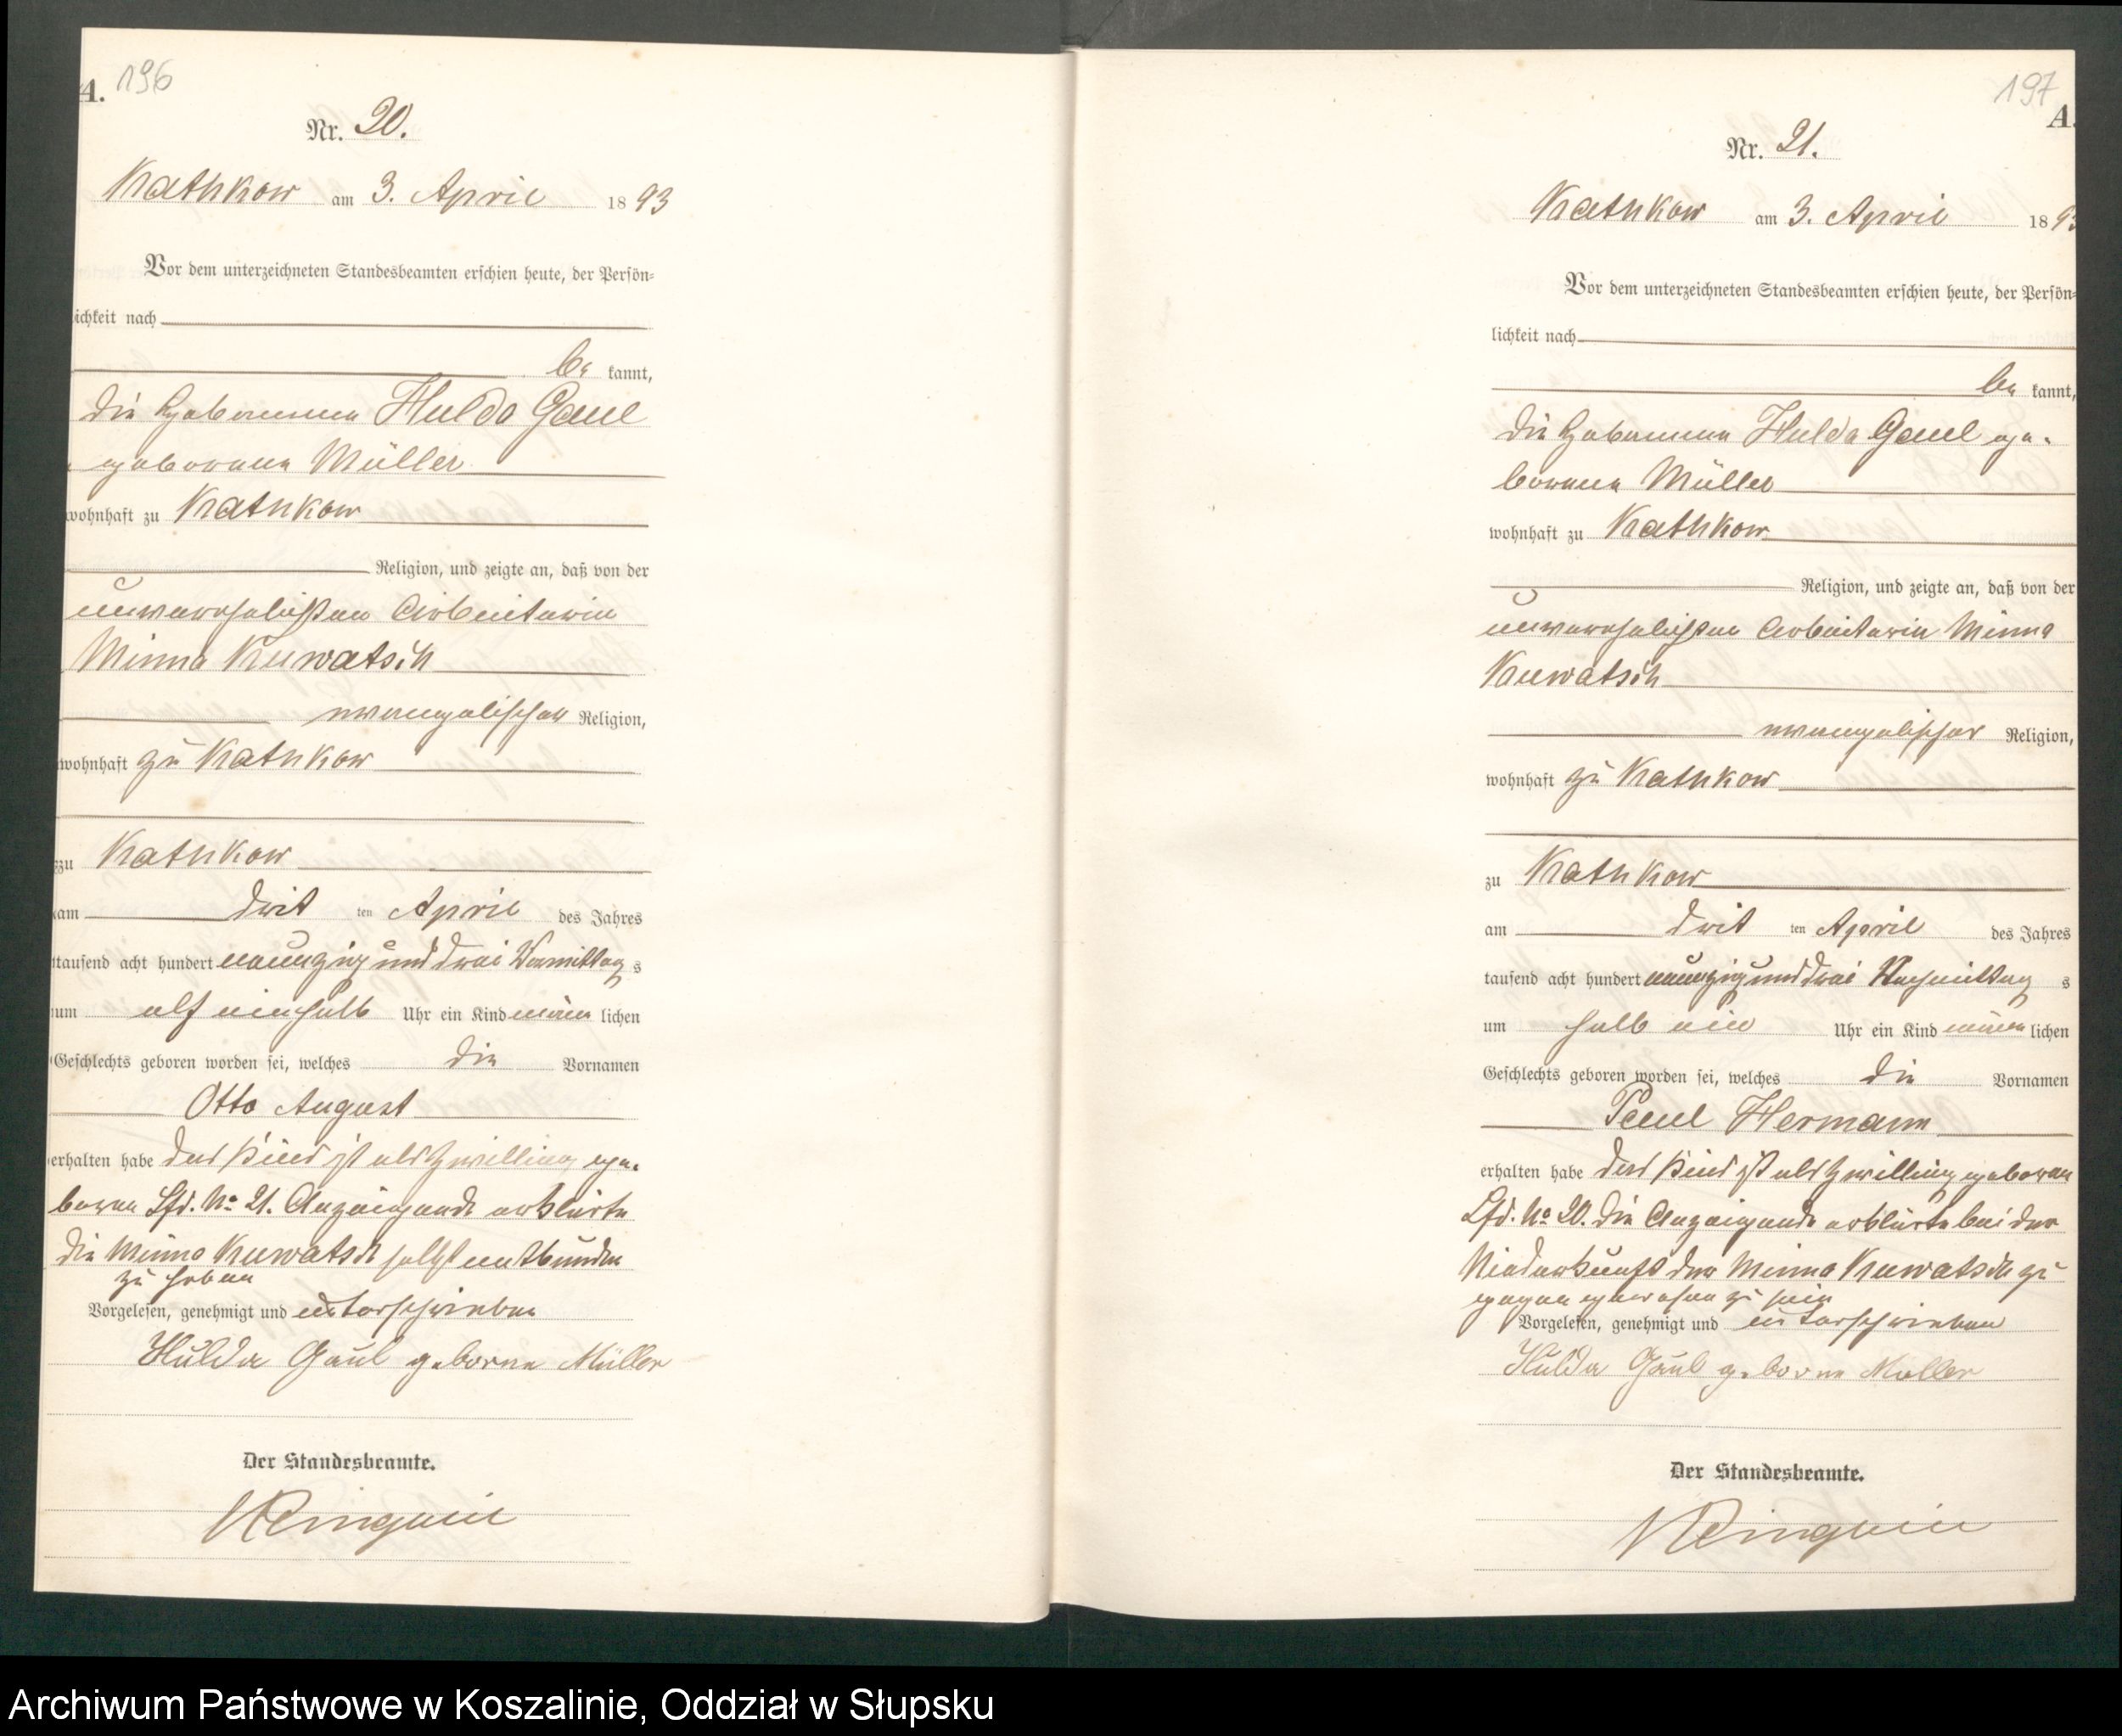 A.
196
Nr. 20.
Kathkow am 3. April 1893
Vor dem unterzeichneten Standesbeamten erschien heute, der Persön-
ichkeit nach
be kannt,
die Hebamme Hulda Gaul
geborene Müller
wohnhaft zu Kathkow
Religion, und zeigte an, daß von der
unverehelichten Arbeiterin
Minna Kuwatsch
evangelischen Religion,
wohnhaft zu Kathkow
zu Kathkow
am drit ten April des Jahres
tausend acht hundert neunzig und drei Vormittag s
um elf einhalb Uhr ein Kind männ lichen
Geschlechts geboren worden sei, welches die Vornamen
Otto August
erhalten habe das Kind ist als Zwilling ge-
boren Lfd. No 21. Anzeigende erklärte
die Minna Kuwatsch selbst entbunden
zu haben
Vorgelesen, genehmigt und unterschrieben
Hulda Gaul geborne Müller
Der Standesbeamte.
197
A.
Nr. 21.
Kathkow am 3. April 1893
Vor dem unterzeichneten Standesbeamten erschien heute, der Persön-
lichkeit nach
be kannt,
die Hebamme Hulda Gaul ge-
borene Müller
wohnhaft zu Kathkow
Religion, und zeigte an, daß von der
unverehelichten Arbeiterin Minna
Kuwatsch
evangelischer Religion,
wohnhaft zu Kathkow
zu Kathkow
am drit ten April des Jahres
tausend acht hundert neunzig und drei Nachmittag s
um halb ein Uhr ein Kind männ lichen
Geschlechts geboren worden sei, welches die Vornamen
Paul Hermann
erhalten habe das Kind ist als Zwilling geboren
Lfd. No 20. die Anzeigende erklärte bei der
Niederkunft der Minna Kuwatsch zu
gegen gewesen zu sein
Vorgelesen, genehmigt und unterschrieben
Hulda Gaul geborne Müller
Der Standesbeamte.
Archiwum Państwowe w Koszalinie, Oddział w Słupsku